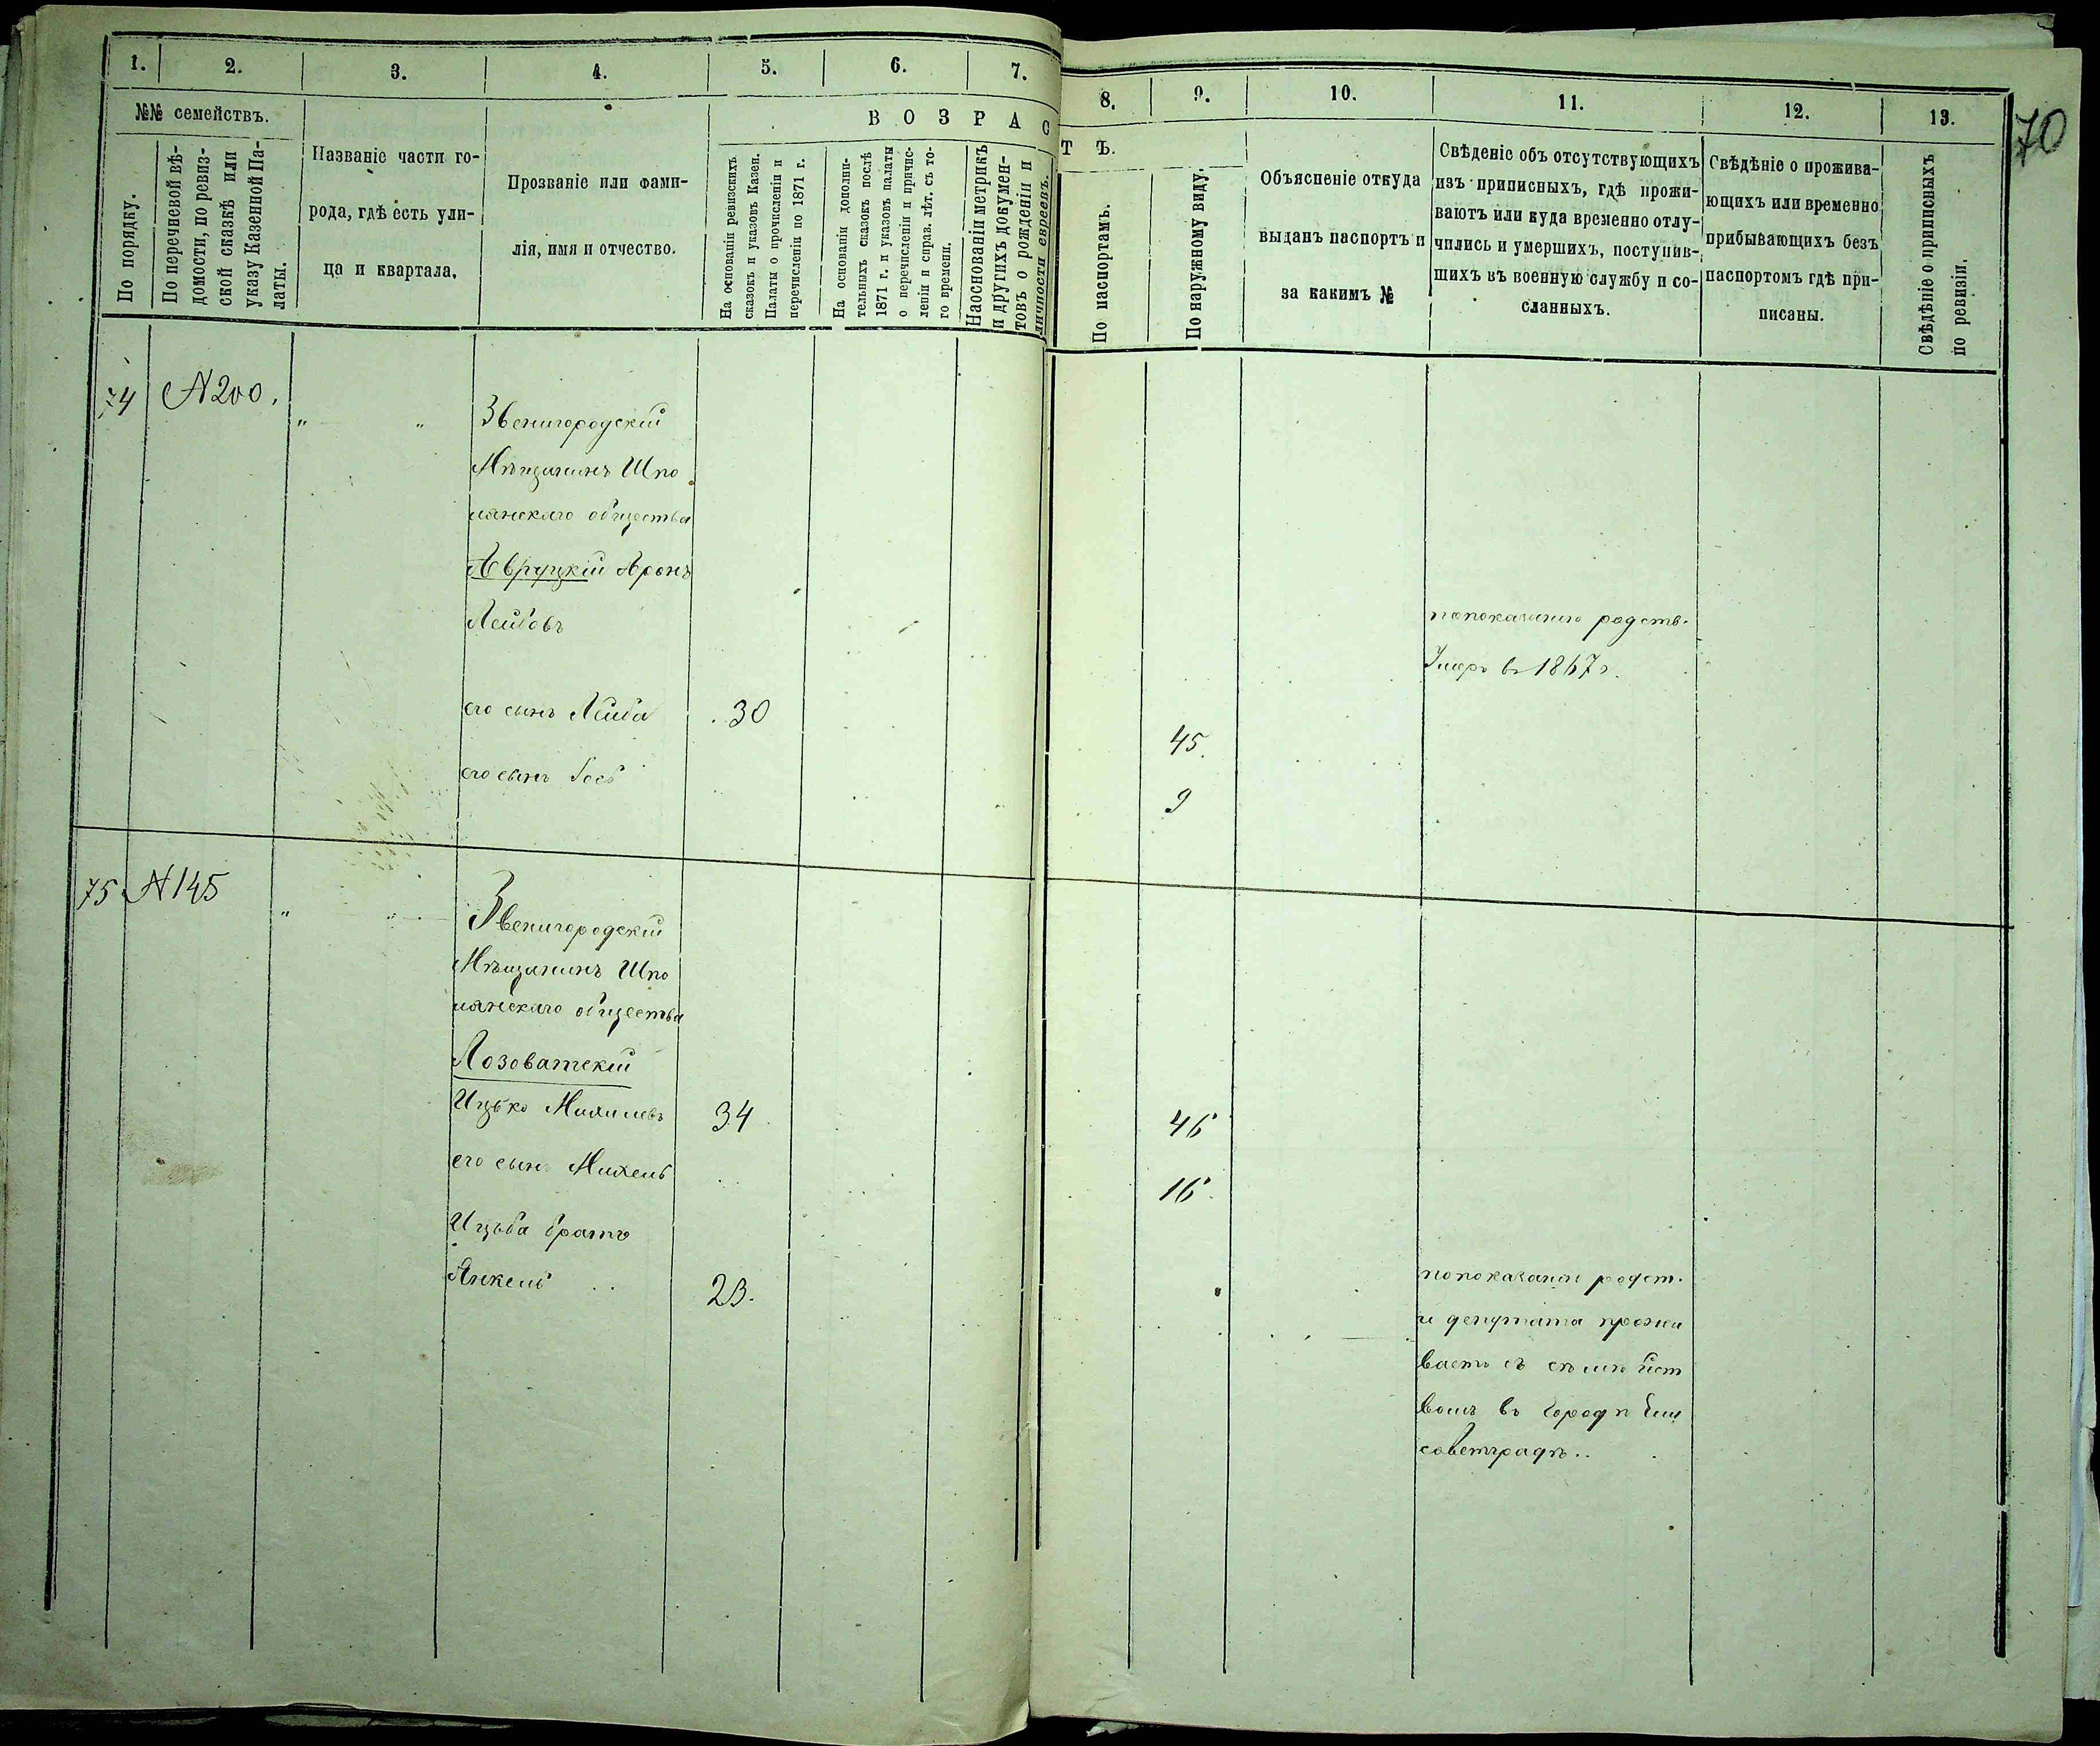 1. 2. 3. 4. 5. 6. 7. 8. 9. 10. 11. 12. 13.
70
№№ семействъ.
По порядку.
По перечневой вѣ-
домости, по ревиз-
ской сказкѣ или
указу Казенной Па-
латы.
Названіе части го-
рода, гдѣ есть ули-
ца и квартала.
Прозваніе или фами-
лія, имя и отчество.
ВОЗРАСТЪ.
На основаніи ревизскихъ
сказокъ и указовъ Казен.
Палаты о причисленіи и
перечисленіи по 1871 г.
На основаніи дополни-
тельныхъ сказокъ послѣ
1871 г. и указовъ палаты
о перечисленіи и причис-
леніи и справ. лѣт. съ то-
го времени.
На основаніи метрикъ
и другихъ докумен-
товъ о рожденіи и
личности евреевъ.
По паспортамъ.
По наружному виду.
Объясненіе откуда
выданъ паспортъ и
за какимъ №
Свѣденіе объ отсутствующихъ
изъ приписныхъ, гдѣ прожи-
ваютъ или куда временно отлу-
чились и умершихъ, поступив-
шихъ въ военную службу и со-
сланныхъ.
Свѣдѣніе о прожива-
ющихъ или временно
прибывающихъ безъ
паспортомъ гдѣ при-
писаны.
Свѣдѣніе о приписныхъ
по ревизіи.
74 N 200. " "
Звенигородскій
Мѣщанинъ Шпо
лянскаго общества
Авруцкій Аронъ
Лейбовъ
попоказанию родств.
Умеръ въ 1867 г.
его сынъ Лейба 30 45.
его сынъ Іосъ 9
75 N 145 " "
Звенигородскій
Мѣщанинъ Шпо
лянскаго общества
Лозоватскій
Ицько Михилевъ 34 46
его сынъ Михель 16.
Ицька братъ
Янкель 23.
попоказанію родст.
и депутата прожи
ваетъ съ семейст
вомъ въ Городѣ Ели
саветградѣ..